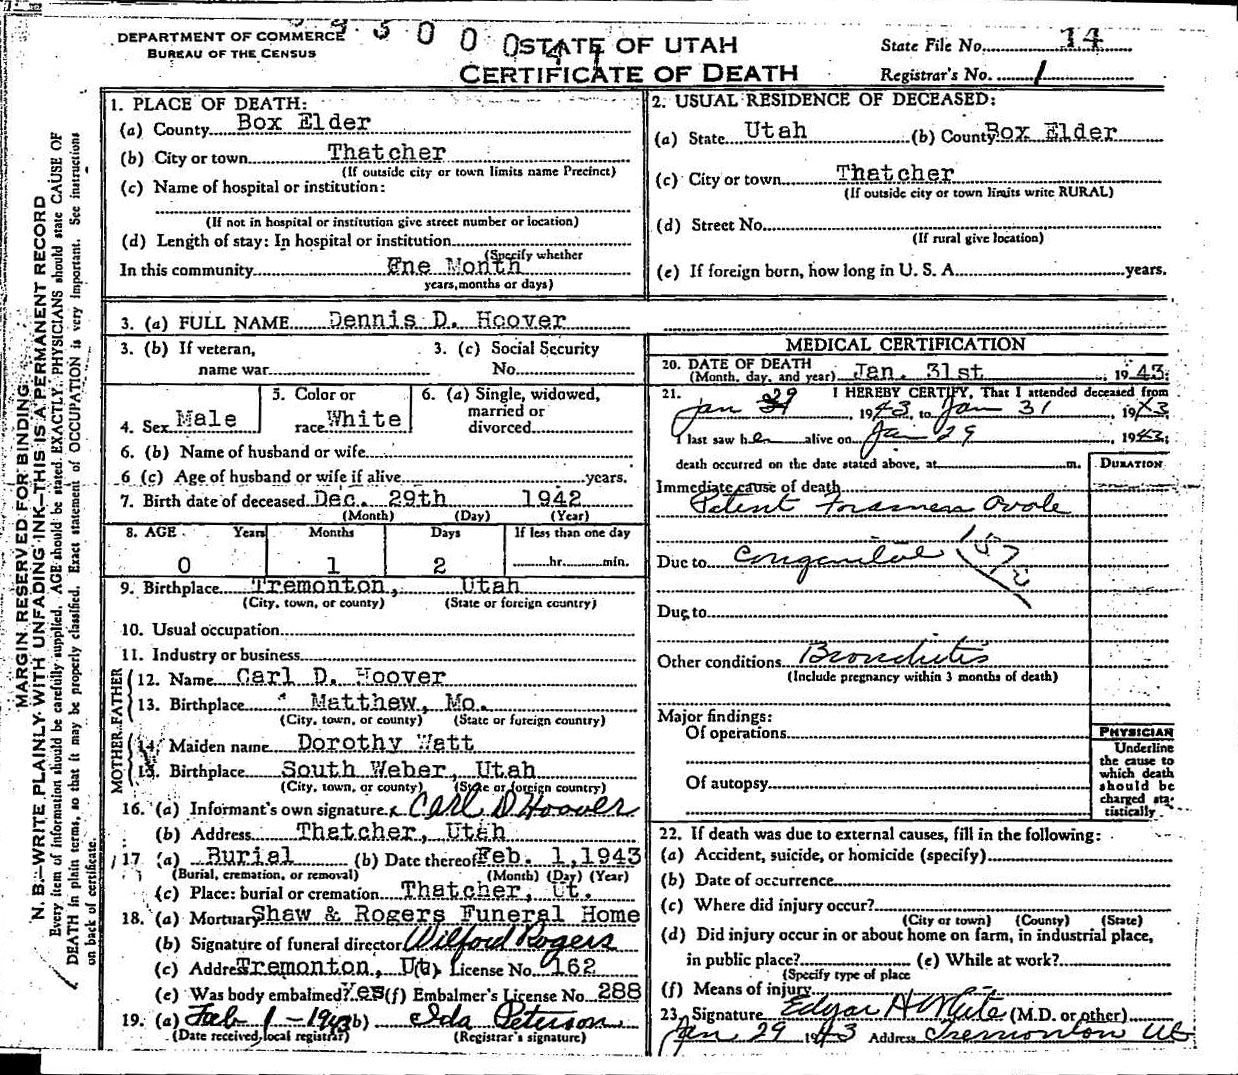 DEPARTMENT OF COMMERCE
BUREAU OF THE CENSUS
STATE OF UTAH
CERTIFICATE OF DEATH
State File No. 14
Registrar's No. 1
MARGIN RESERVED FOR BINDING
N. B.—WRITE PLAINLY WITH UNFADING INK—THIS IS A PERMANENT RECORD
Every item of information should be carefully supplied. AGE should be stated EXACTLY. PHYSICIANS should state CAUSE OF
DEATH in plain terms, so that it may be properly classified. Exact statement of OCCUPATION is very important. See instructions
on back of certificate.
1. PLACE OF DEATH:
(a) County Box Elder
(b) City or town Thatcher
(If outside city or town limits name Precinct)
(c) Name of hospital or institution:
(If not in hospital or institution give street number or location)
(d) Length of stay: In hospital or institution
(Specify whether
In this community One Month
years, months or days)
2. USUAL RESIDENCE OF DECEASED:
(a) State Utah (b) County Box Elder
(c) City or town Thatcher
(If outside city or town limits write RURAL)
(d) Street No.
(If rural give location)
(e) If foreign born, how long in U. S. A. years.
3. (a) FULL NAME Dennis D. Hoover
3. (b) If veteran,
name war
3. (c) Social Security
No.
4. Sex Male
5. Color or
race White
6. (a) Single, widowed,
married or
divorced
6. (b) Name of husband or wife
6 (c) Age of husband or wife if alive years.
7. Birth date of deceased Dec. 29th 1942
(Month) (Day) (Year)
8. AGE Years Months Days If less than one day
0 1 2 hr. min.
9. Birthplace Tremonton, Utah
(City, town, or county) (State or foreign country)
10. Usual occupation
11. Industry or business
FATHER
12. Name Carl D. Hoover
13. Birthplace Matthew, Mo.
(City, town, or county) (State or foreign country)
MOTHER
14. Maiden name Dorothy Watt
15. Birthplace South Weber, Utah
(City, town, or county) (State or foreign country)
16. (a) Informant's own signature x Carl D Hoover
(b) Address Thatcher, Utah
17 (a) Burial (b) Date thereof Feb. 1, 1943
(Burial, cremation, or removal) (Month) (Day) (Year)
(c) Place: burial or cremation Thatcher, Ut.
18. (a) Mortuary Shaw & Rogers Funeral Home
(b) Signature of funeral director Wilford Rogers
(c) Address Tremonton, Ut. License No. 162
(e) Was body embalmed? Yes (f) Embalmer's License No. 288
19. (a) Feb 1 - 1943 (b) Ida Peterson
(Date received local registrar) (Registrar's signature)
MEDICAL CERTIFICATION
20. DATE OF DEATH
(Month, day, and year) Jan. 31st, 1943.
21. I HEREBY CERTIFY, That I attended deceased from
Jan 29, 1943, to Jan 31, 1943
I last saw her alive on Jan 29, 1943;
death occurred on the date stated above, at m.
DURATION
Immediate cause of death
Patent Foramen Ovale
Due to Congenital 157
Due to
Other conditions Bronchitis
(Include pregnancy within 3 months of death)
Major findings:
Of operations
Of autopsy
PHYSICIAN
Underline
the cause to
which death
should be
charged sta-
tistically.
22. If death was due to external causes, fill in the following:
(a) Accident, suicide, or homicide (specify)
(b) Date of occurrence
(c) Where did injury occur?
(City or town) (County) (State)
(d) Did injury occur in or about home on farm, in industrial place,
in public place? (e) While at work?
(Specify type of place
(f) Means of injury
23. Signature Edgar H White (M.D. or other)
Jan 29 1943 Address Tremonton Ut